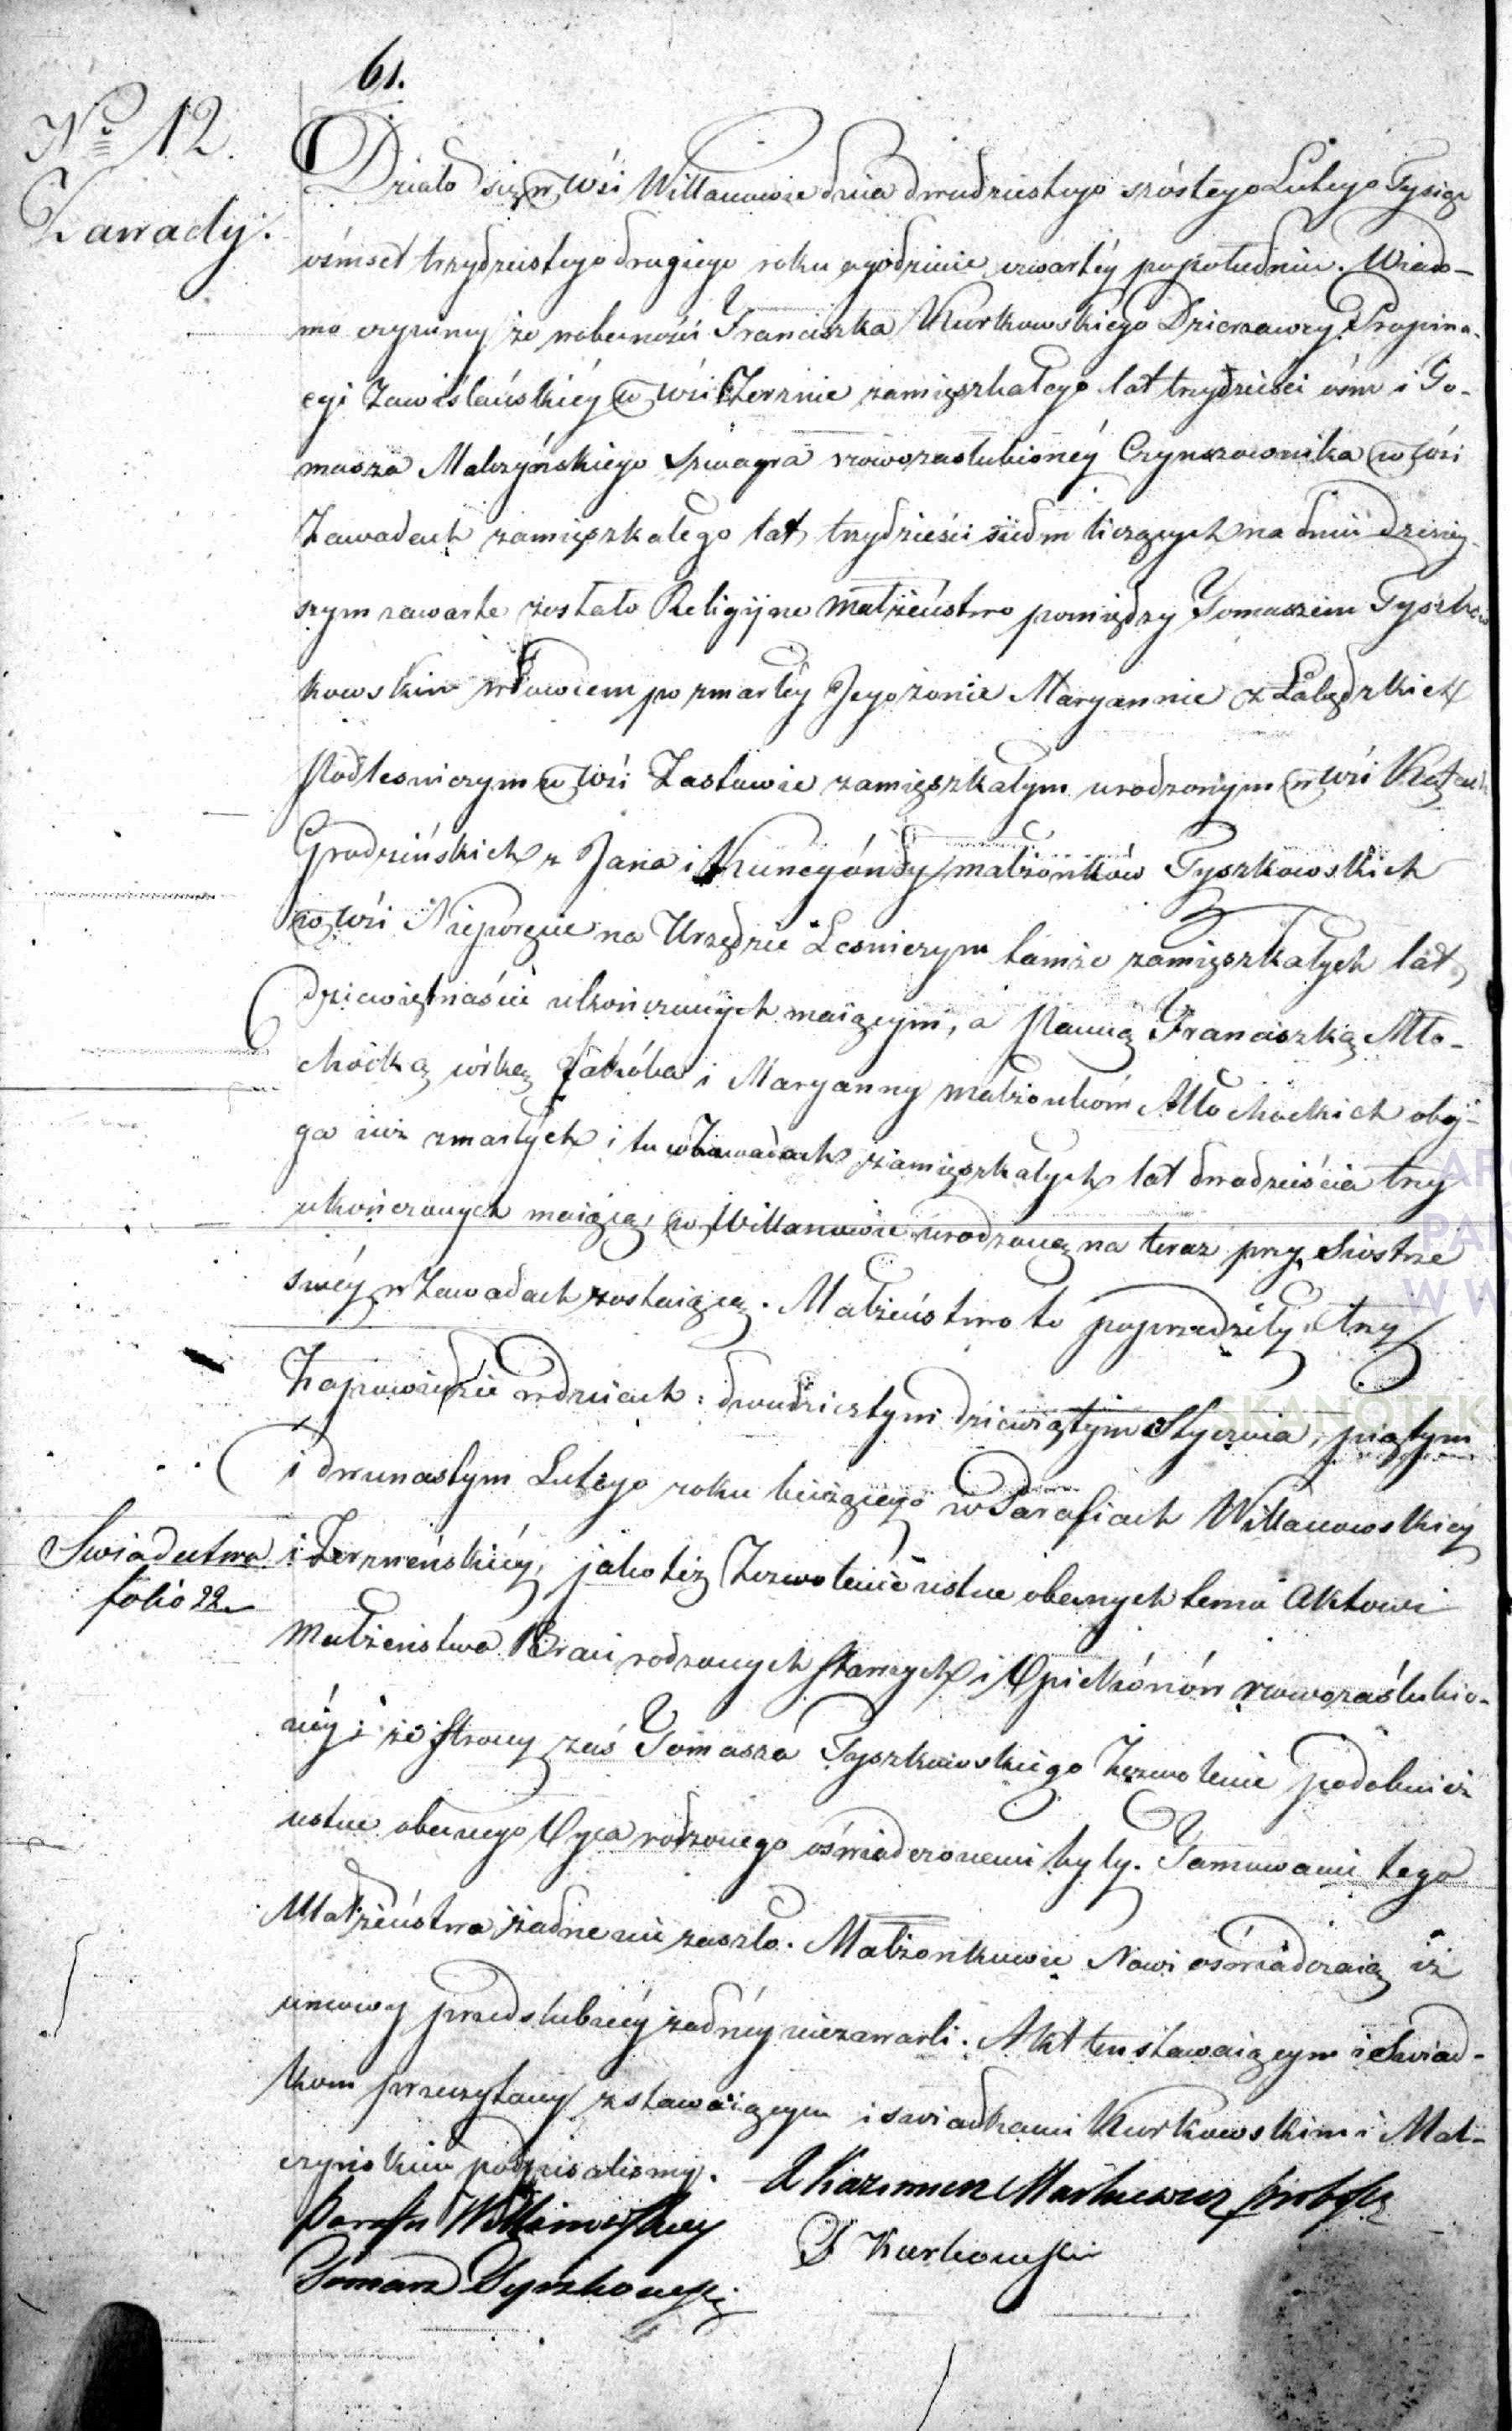 61.
No 12.
Zawady.
Działo się w Wsi Willanowie dnia dwudziestego szóstego Lutego Tysiąc
ośmset trzydziestego drugiego roku o godzinie czwartéy popołudniu. Wiado-
mo czyniemy że w obecności Franciszka Kurkowskiego Dzierzawcy Propina-
cyi Zawiślańskiéy w Wsi Zerznie zamięszkałego lat trzydzieści ośm i To-
masza Malczyńskiego Szwagra nowozaslubionéy Czynszownika w Wsi
Zawadach zamięszkałego lat trzydzieści siedm liczących na dniu dzisiey-
szym zawarte zostało Religijne Małżeństwo pomiędzy Tomaszem Tyszko
kowskim wdowcem po zmarłéy Jego żonie Maryannie z Łabędzkich
Podlesniczym w Wsi Zastawie zamięszkałym urodzonym w Wsi Kątach
Grodzińskich z Jana i Kunegóndy małżonków Tyszkowskich
w Wsi Nieporęcie na Urzędzie Lesniczym tamże zamięszkałych lat
dziewiętnaście ukończonych maiącym, a Panną Franciszką Mło-
chocką córką Jakóba i Maryanny małżonków Młochockich oboy-
ga iuż zmarłych i tu w Zawadach zamięszkałych lat dwadzieścia trzy
ukończonych maiącą, w Willanowie urodzoną na teraz przy Siostrze
swéy w Zawadach zostaiącą. Małżeństwo to poprzedziły trzy
Zapowiedzie w dniach: dwudziestym dziewiątym Stycznia, piątym
i dwunastym Lutego roku bieżącego w Parafiach Willanowskiéy
Swiadectwa
folio 22
i Zerzneńskiéy, jako też Zezwolenie ustne obecnych temu Aktowi
Małżeństwa Braci rodzonych starszych i Opiekónów nowozaślubio-
néy; ze strony zaś Tomasza Tyszkowskiego Zezwolenie podobnież
ustne obecnego Oyca rodzonego oświadczonemi były. Tamowanie tego
Małżeństwa żadne nie zaszło. Małżonkowie Nowi oświadczaią iż
umowy przedslubnéy żadnéy niezawarli. Akt ten stawaiącym i Swiad-
kom przeczytany z stawaiącym i swiadkami Kurkowskim i Mal-
czyńskim podpisalismy. X Kazimierz Markiewicz Proboszcz
Parafii Willanowskiey
F Kurkowski
Tomasz Tyszkowski